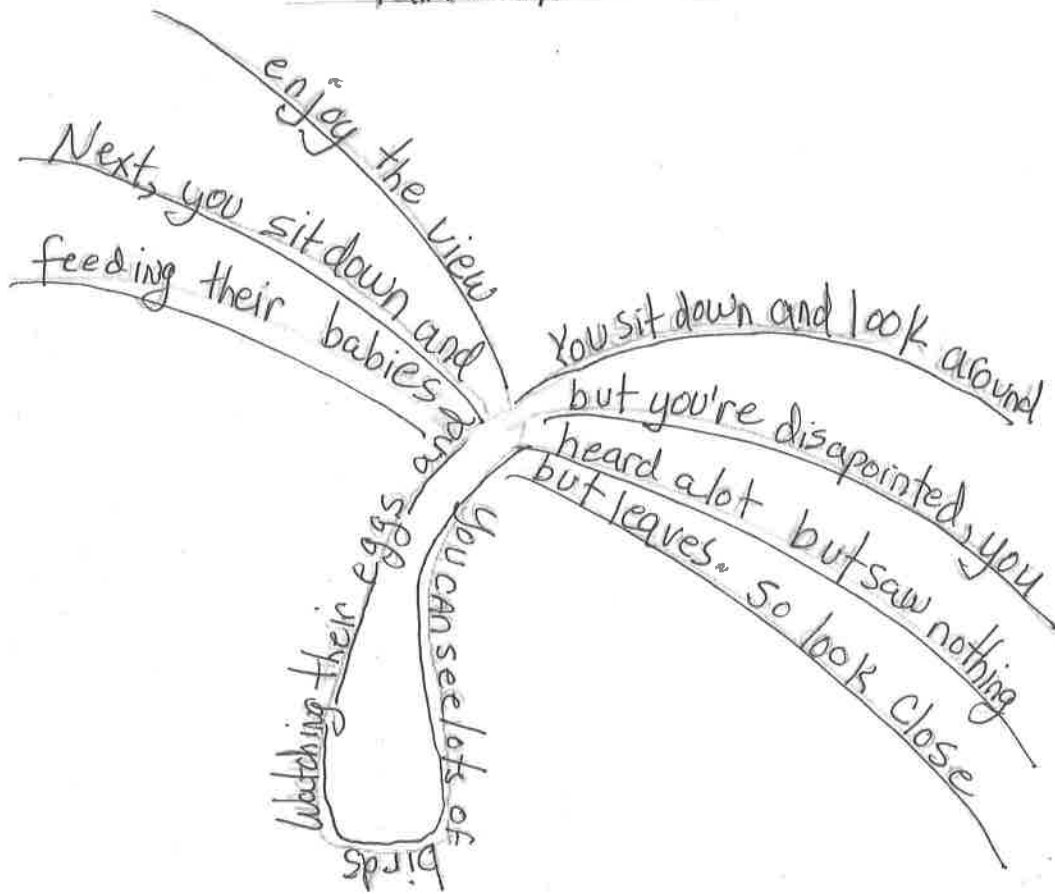 You sit down and look around
but you're disapointed, you
heard alot but saw nothing
but leaves. so look close
you cAn see lots of
birds
Watching their eggs and
feeding their babies
Next, you sit down and
enjoy the view